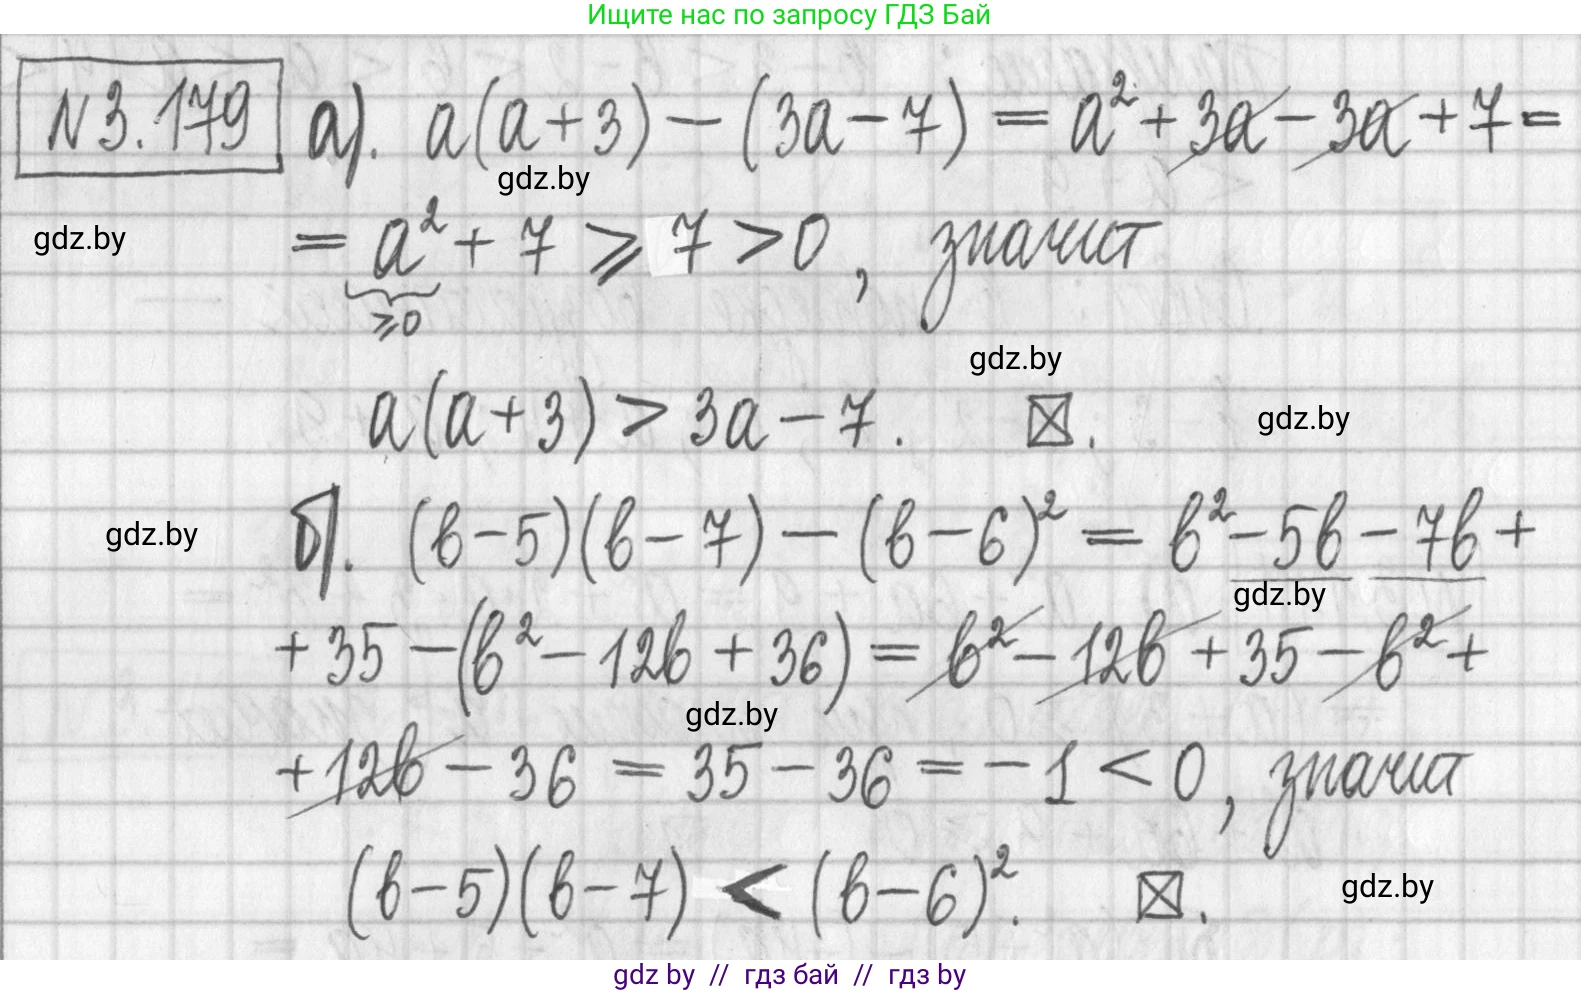 Ищите нас по запросу ГДЗ Бай
№3.179 а). a(a+3) − (3a − 7) = a² + 3a − 3a + 7 =
gdz.by
gdz.by
= a² + 7 ⩾ 7 > 0, значит
⩾0
gdz.by
a(a+3) > 3a − 7. ⊠.
gdz.by
б). (b−5)(b−7) − (b−6)² = b² − 5b − 7b +
gdz.by
gdz.by
+ 35 − (b² − 12b + 36) = b² − 12b + 35 − b² +
gdz.by
+ 12b − 36 = 35 − 36 = −1 < 0, значит
(b−5)(b−7) < (b−6)². ⊠.
gdz.by
gdz by // гдз бай // гдз by